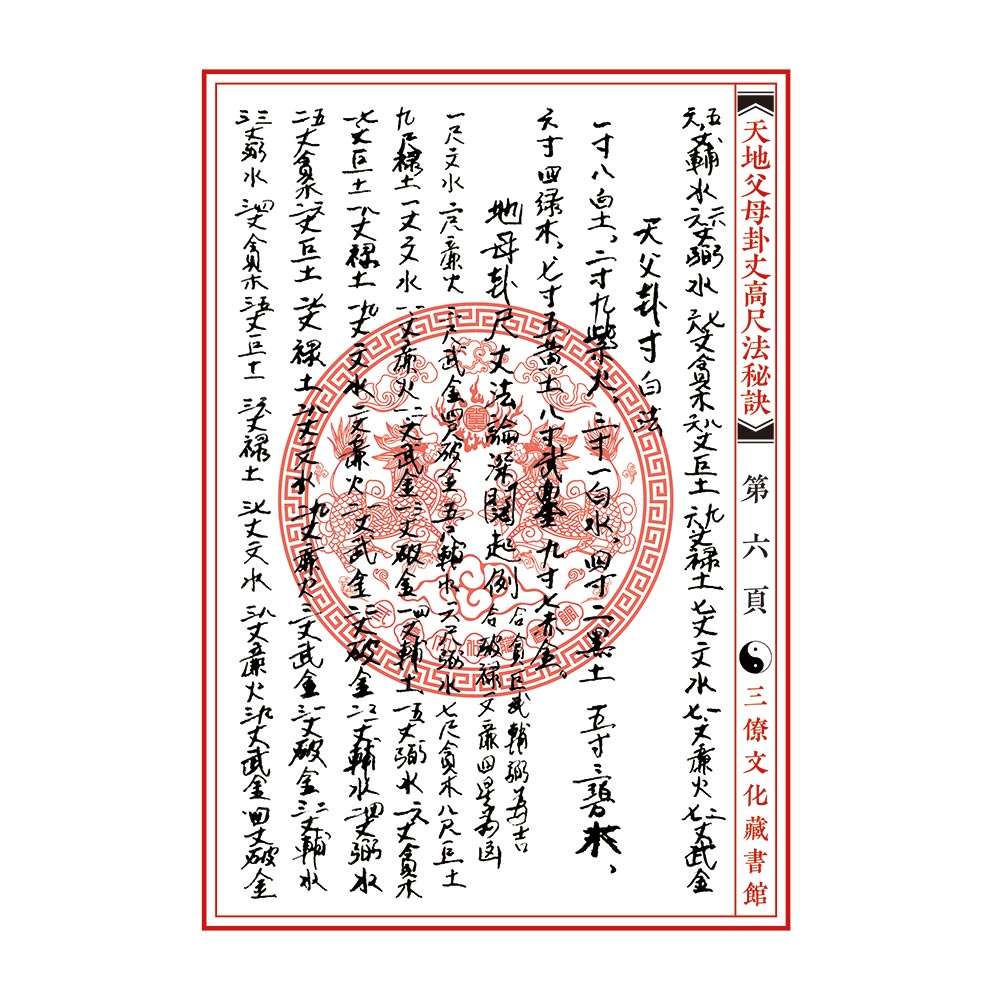 天地父母卦丈高尺法秘訣 第六頁 三僚文化藏書館
六五丈輔水 六六丈弼水 六七丈貪木 六八丈巨土 六九丈禄土 七丈文水 七一丈廉火 七二丈武金
天父卦寸白法
一寸八白土、二寸九柴火、三寸一白水、四寸二黑土 五寸三碧木、
六寸四绿木、七寸五黄土 八寸 九寸七赤金。
地母卦尺丈法論深闊起例
合貪巨武輔弼為吉
合破禄文廉四星為凶
一尺文水 二尺廉火 三尺武金 四尺破金 五尺輔水 六尺弼水 七尺貪木 八尺巨土
九尺禄土 一丈文水 一一丈廉火 一二丈武金 一三丈破金 一四丈輔土 一五丈弼水 一六丈貪木
一七丈巨土 一八丈禄土 一九丈文水 二丈廉火 二一丈武金 二二丈破金 二三丈輔水 二四丈弼水
二五丈貪木 二六丈巨土 二七丈禄土 二八丈文水 二九丈廉火 三丈武金 三一丈破金 三二丈輔水
三三丈弼水 三四丈貪木 三五丈巨土 三六丈禄土 三七丈文水 三八丈廉火 三九丈武金 四丈破金